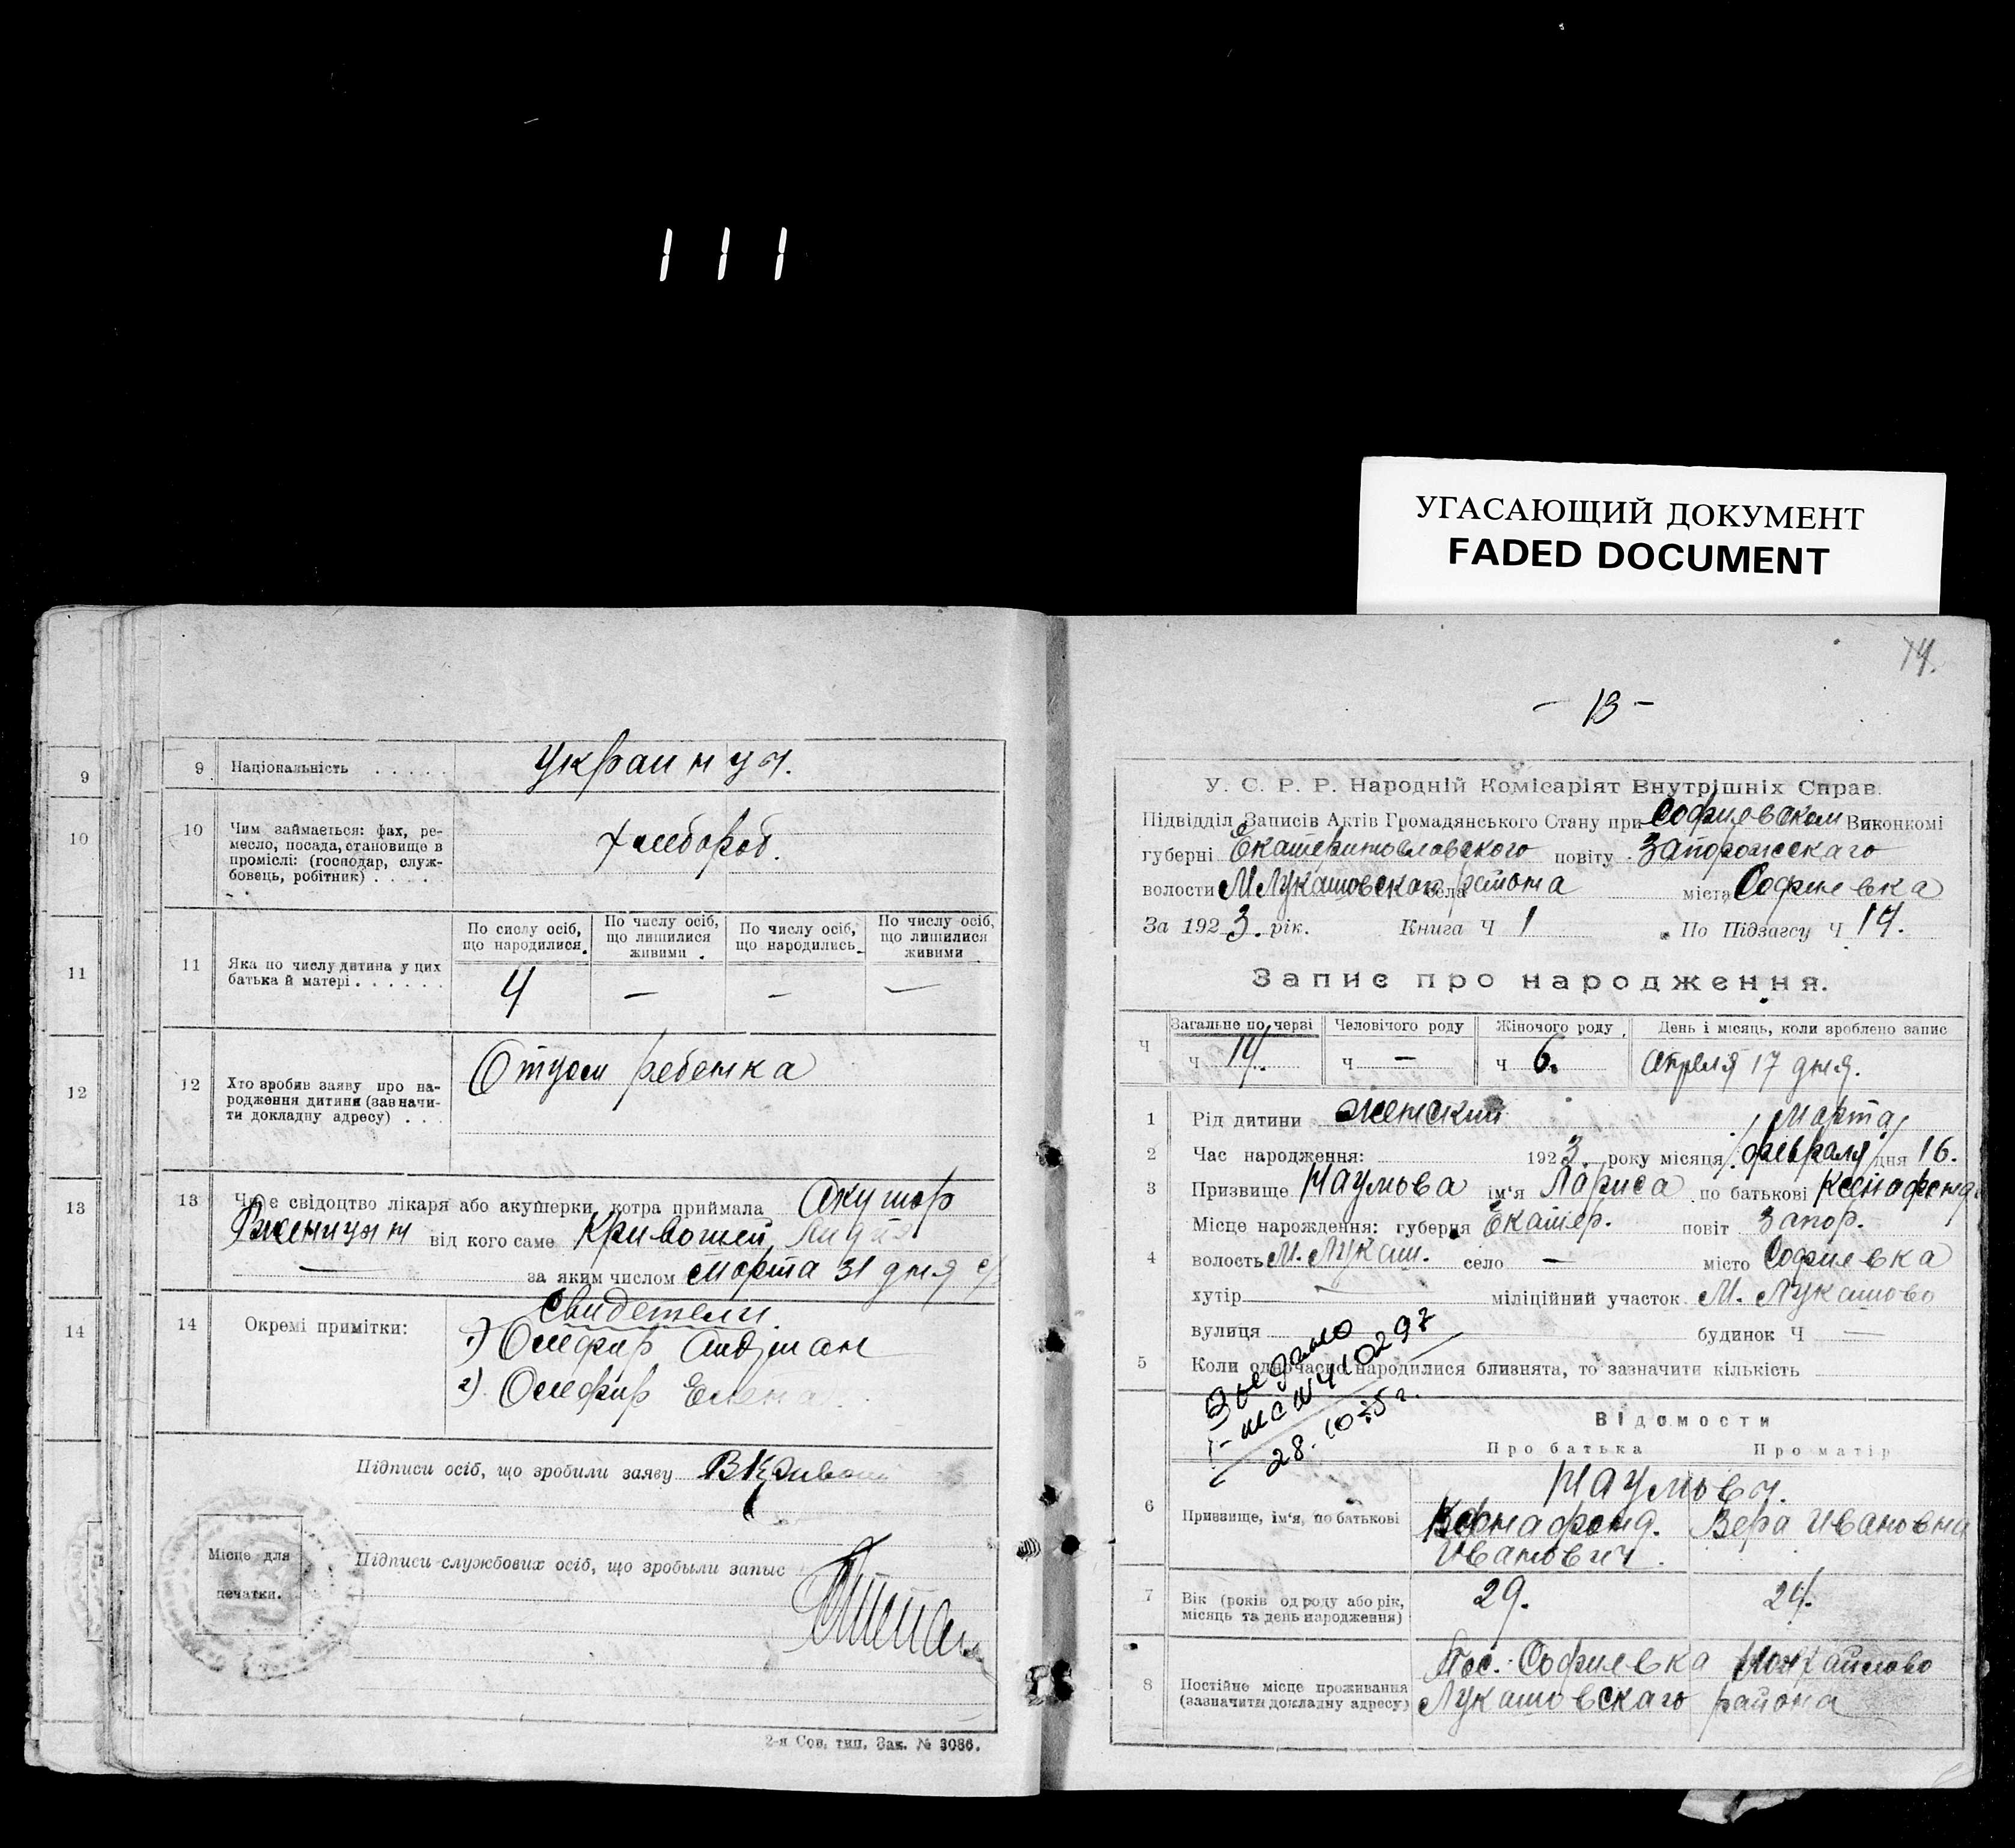 111
УГАСАЮЩИЙ ДОКУМЕНТ
FADED DOCUMENT
9
10
11
12
13
14
9 Національність . . . . . Украинцы.
10 Чим займається: фах, ре-
месло, посада, становище в
проміслі: (господар, служ-
бовець, робітник) . . . . .
Хлебороб.
11 Яка по числу дитина у цих
батька й матері . . . . . .
По сислу осіб, що народилися. 4
По числу осіб, що лишилися живими . —
По числу осіб, що народились —
По числу осіб, що лишилися живими —
12 Хто зробив заяву про на-
родження дитини (зазначи-
ти докладну адресу) . . .
Отцом ребенка
13 Чи е свідоцтво лікаря або акушерки, котра приймала Акушор
від кого саме Кривошей
за яким числом Марта 31 дня
14 Окремі примітки:
Свидетели.
1) Олефир
2) Олефир Елена
Підписи осіб, що зробили заяву
Підписи службових осіб, що зробыли запыс
Місце для
печатки.
2-я Сов. тип. Зак. № 3086.
14.
– 13 –
У. С. Р. Р. Народній Комісаріят Внутрішніх Справ.
Підвідділ Записів Актів Громадянського Стану при Софиевском Виконкомі
губерні Екатеринославского повіту Запорожскаго
волости МЛукашовскаго села района міста Софиевка
За 1923. рік. Книга Ч 1 По Підзагсу Ч 14.
Запис про народження.
Ч Загальне по черзі Человічого роду Жіночого роду День і місяць, коли зроблено запис
Ч 14. Ч — Ч 6. Апреля 17 дня.
1 Рід дитини женский
Марта
2 Час народження: 1923 року місяця /февраля/ дня 16.
3 Призвище Наумова ім'я Лариса по батькові Ксенофонд.
4 Місце нарождення: губерня Екатер. повіт Запор.
волость М. Лукаш. село — місто Софиевка
хутір міліційний участок М. Лукашово
вулиця будинок Ч —
5 Коли одночасно народилися близнята, то зазначити кількість
28. 10
Відомости
Про батька Про матір
6 Призвище, ім'я, по батькові
Наумовы.
Ксенофонд. Вера Ивановна
Иванович.
7 Вік (років од роду або рік,
місяць та день народження)
29. 24.
8 Постійне місце проживання
(зазначити докладну адресу)
Пос. Софиевка
Лукашовскаго района